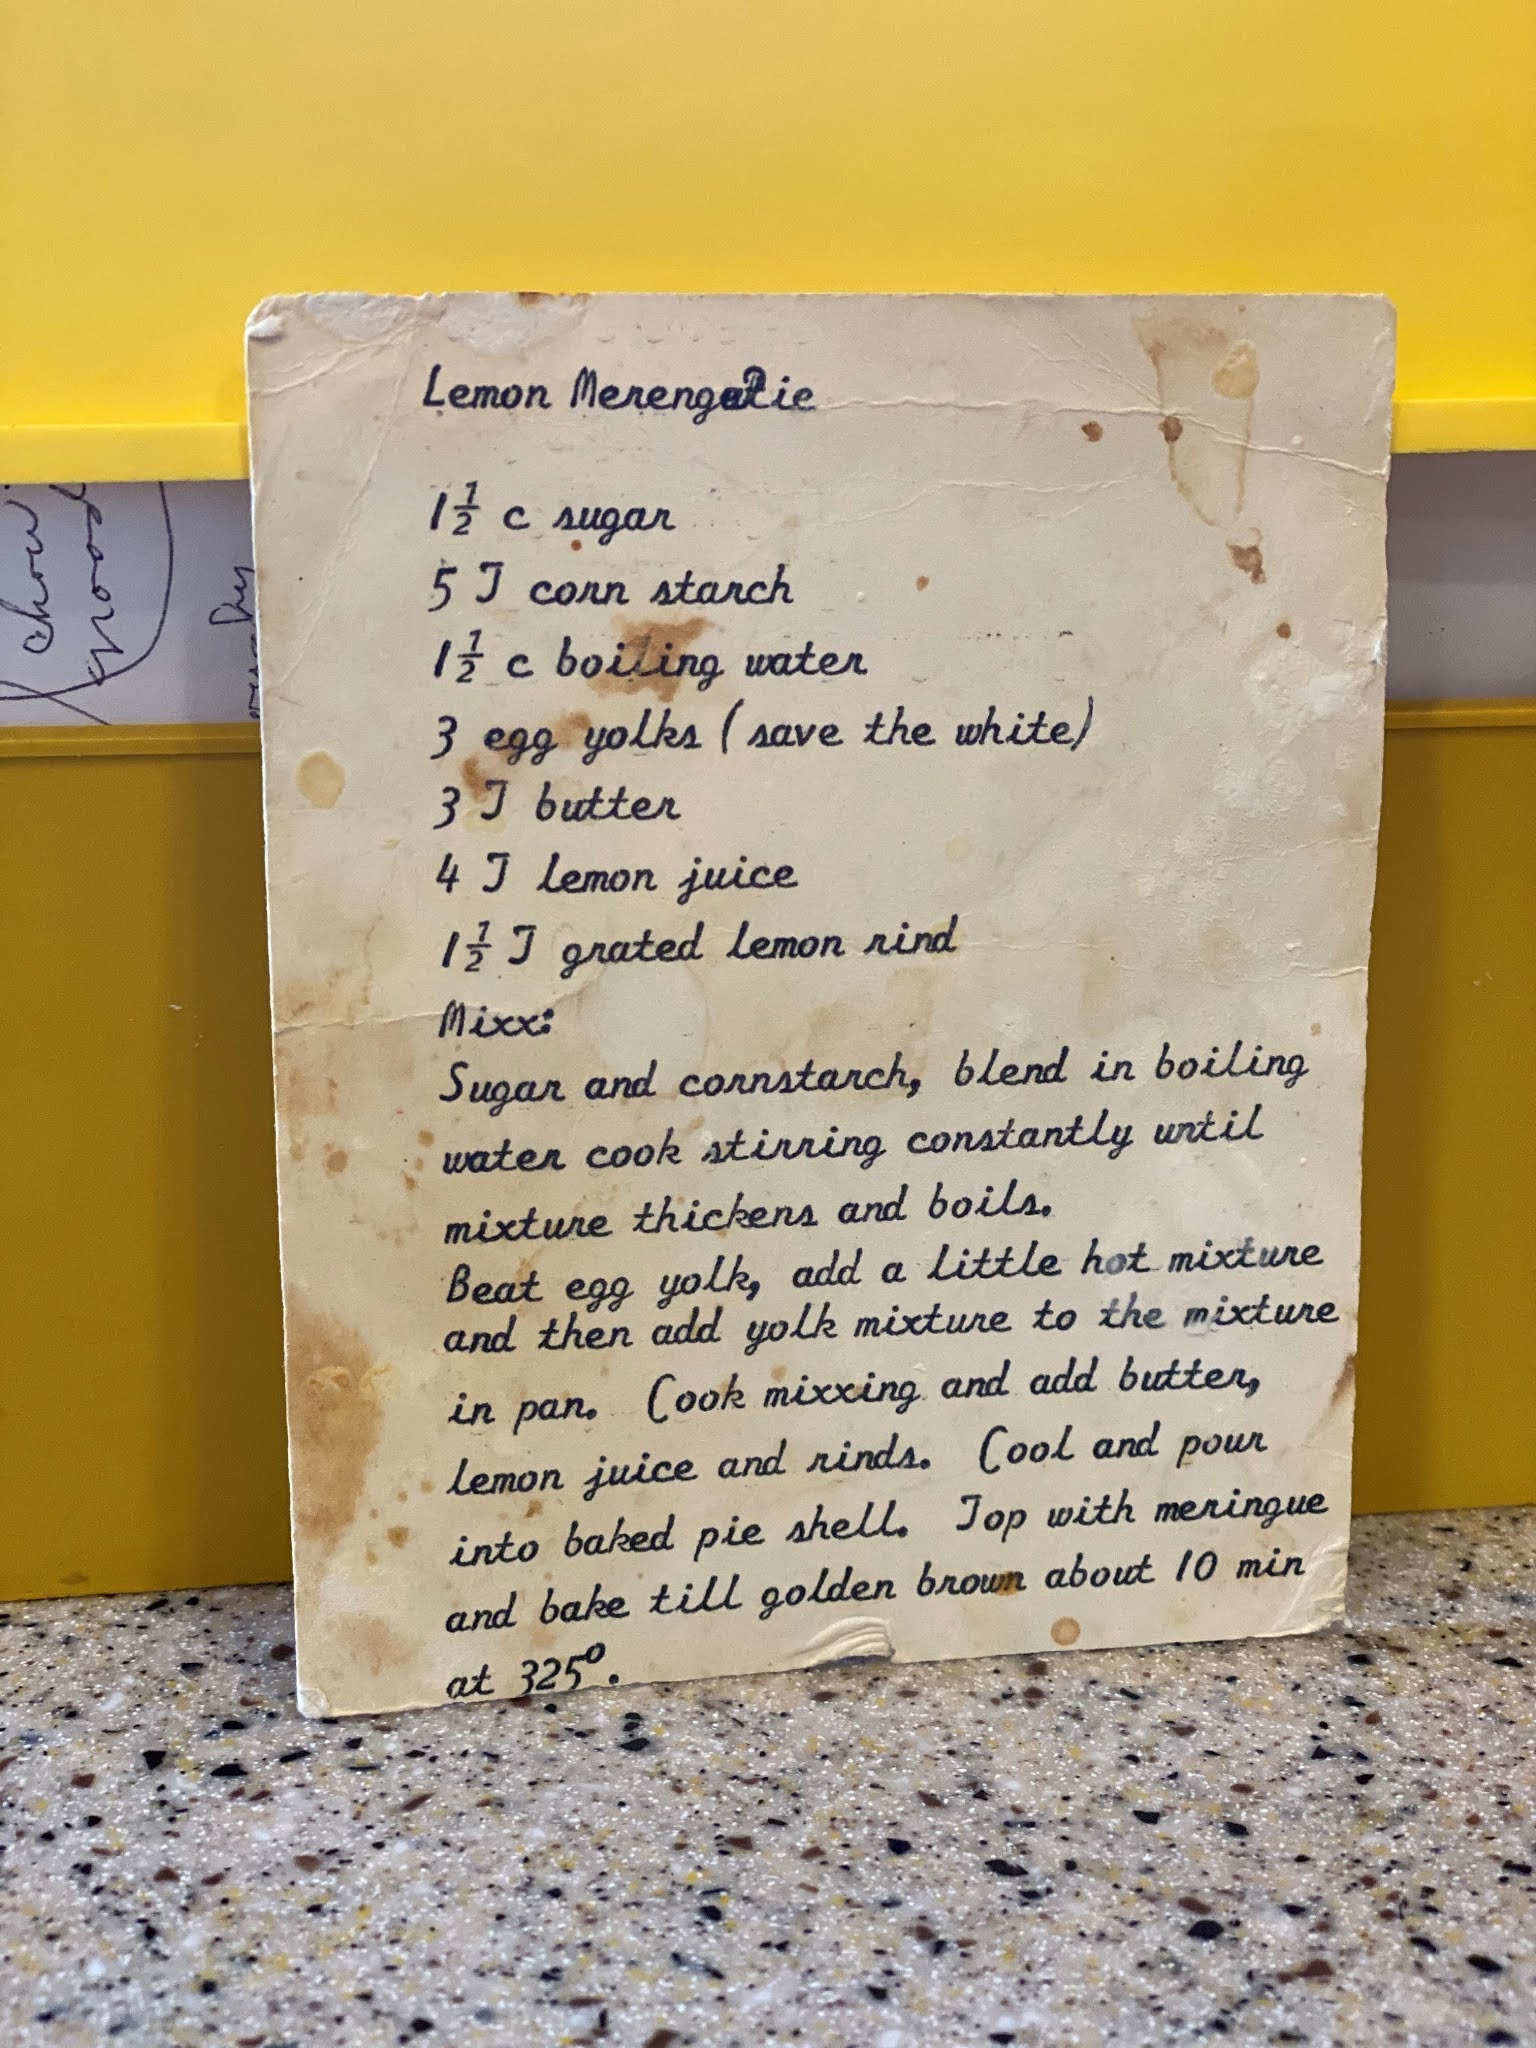 chow
Lemon Merengue Pie
1 1/2 c sugar
5 T corn starch
1 1/2 c boiling water
3 egg yolks (save the white)
3 T butter
4 T lemon juice
1 1/2 T grated lemon rind
Mixx:
Sugar and cornstarch, blend in boiling
water cook stirring constantly until
mixture thickens and boils.
Beat egg yolk, add a little hot mixture
and then add yolk mixture to the mixture
in pan. Cook mixxing and add butter,
lemon juice and rinds. Cool and pour
into baked pie shell. Top with meringue
and bake till golden brown about 10 min
at 325°.